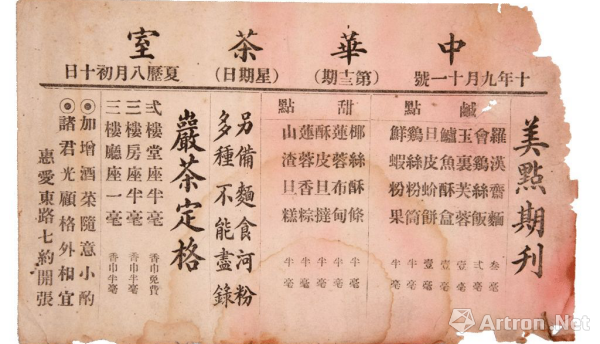 中華茶室
十年九月十一號
(第十二期)
(星期日)
夏曆八月初十日
美點期刊
鹹點
羅漢齋麵 叁毫
會鷄絲飯 弍毫
玉裏芙蓉 壹毫
鱸魚酥盒 壹毫
旦皮蛤餅 壹毫
鷄絲粉筒 半毫
鮮蝦粉果 半毫
甜點
椰絲酥條 半毫
蓮蓉布甸 半毫
酥皮旦撻 半毫
蓮蓉香粽 半毫
山渣旦糕 半毫
另備麵食河粉
多種不能盡錄
巖茶定格
弍樓堂座半毫 香巾免費
三樓房座半毫 香巾半毫
三樓廳座一毫 香巾半毫
◎加增酒菜隨意小酌
◎諸君光顧格外相宜
惠愛東路七約開張
Artron.Net